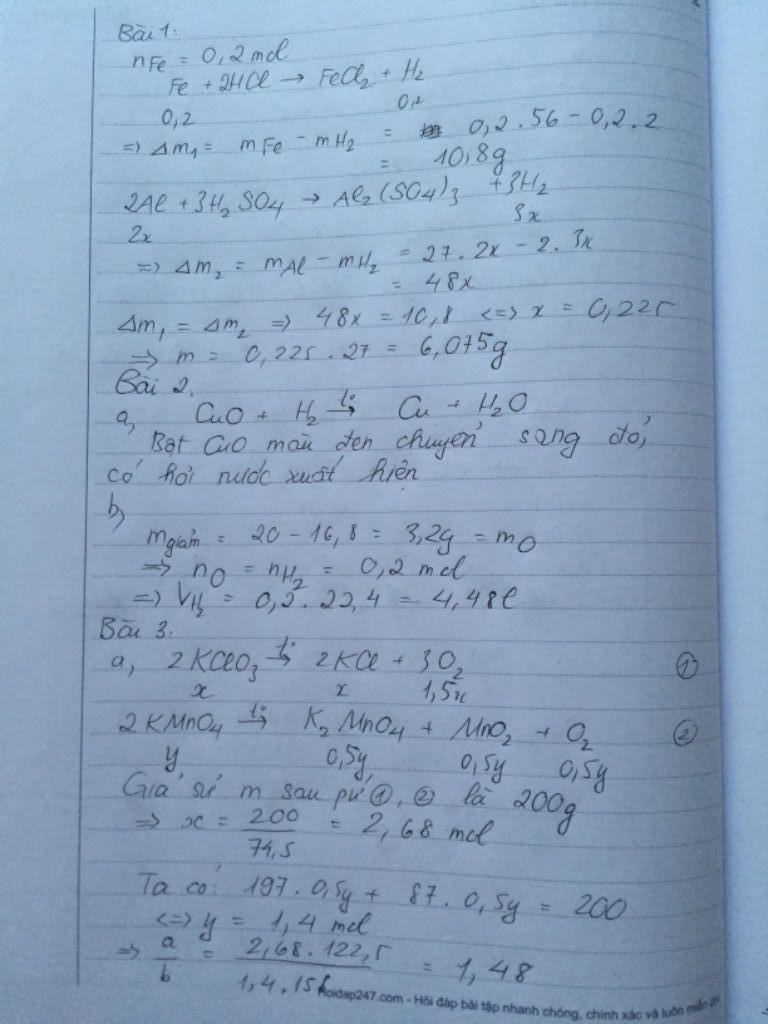 Bài 1:
nFe = 0,2 mol
Fe + 2HCl → FeCl2 + H2
0,2 0,2
=> Δm1 = mFe − mH2 = 0,2.56 − 0,2.2
= 10,8g
2Al + 3H2SO4 → Al2(SO4)3 + 3H2
2x 3x
=> Δm2 = mAl − mH2 = 27.2x − 2.3x
= 48x
Δm1 = Δm2 => 48x = 10,8 <=> x = 0,225
=> m = 0,225.27 = 6,075g
Bài 2.
a, CuO + H2 t°→ Cu + H2O
Bột CuO màu đen chuyển sang đỏ,
có hơi nước xuất hiện
b)
mgiảm = 20 − 16,8 = 3,2g = mO
=> nO = nH2 = 0,2 mol
=> VH2 = 0,2.22,4 = 4,48l
Bài 3:
a, 2KClO3 t°→ 2KCl + 3O2 ①
x x 1,5x
2KMnO4 t°→ K2MnO4 + MnO2 + O2 ②
y 0,5y 0,5y 0,5y
Giả sử m sau pứ ①, ② là 200g
=> x = 200/74,5 = 2,68 mol
Ta có: 197.0,5y + 87.0,5y = 200
<=> y = 1,4 mol
=> a/b = 2,68.122,5/1,4.158 = 1,48
Hoidap247.com - Hỏi đáp bài tập nhanh chóng, chính xác và luôn miễn phí